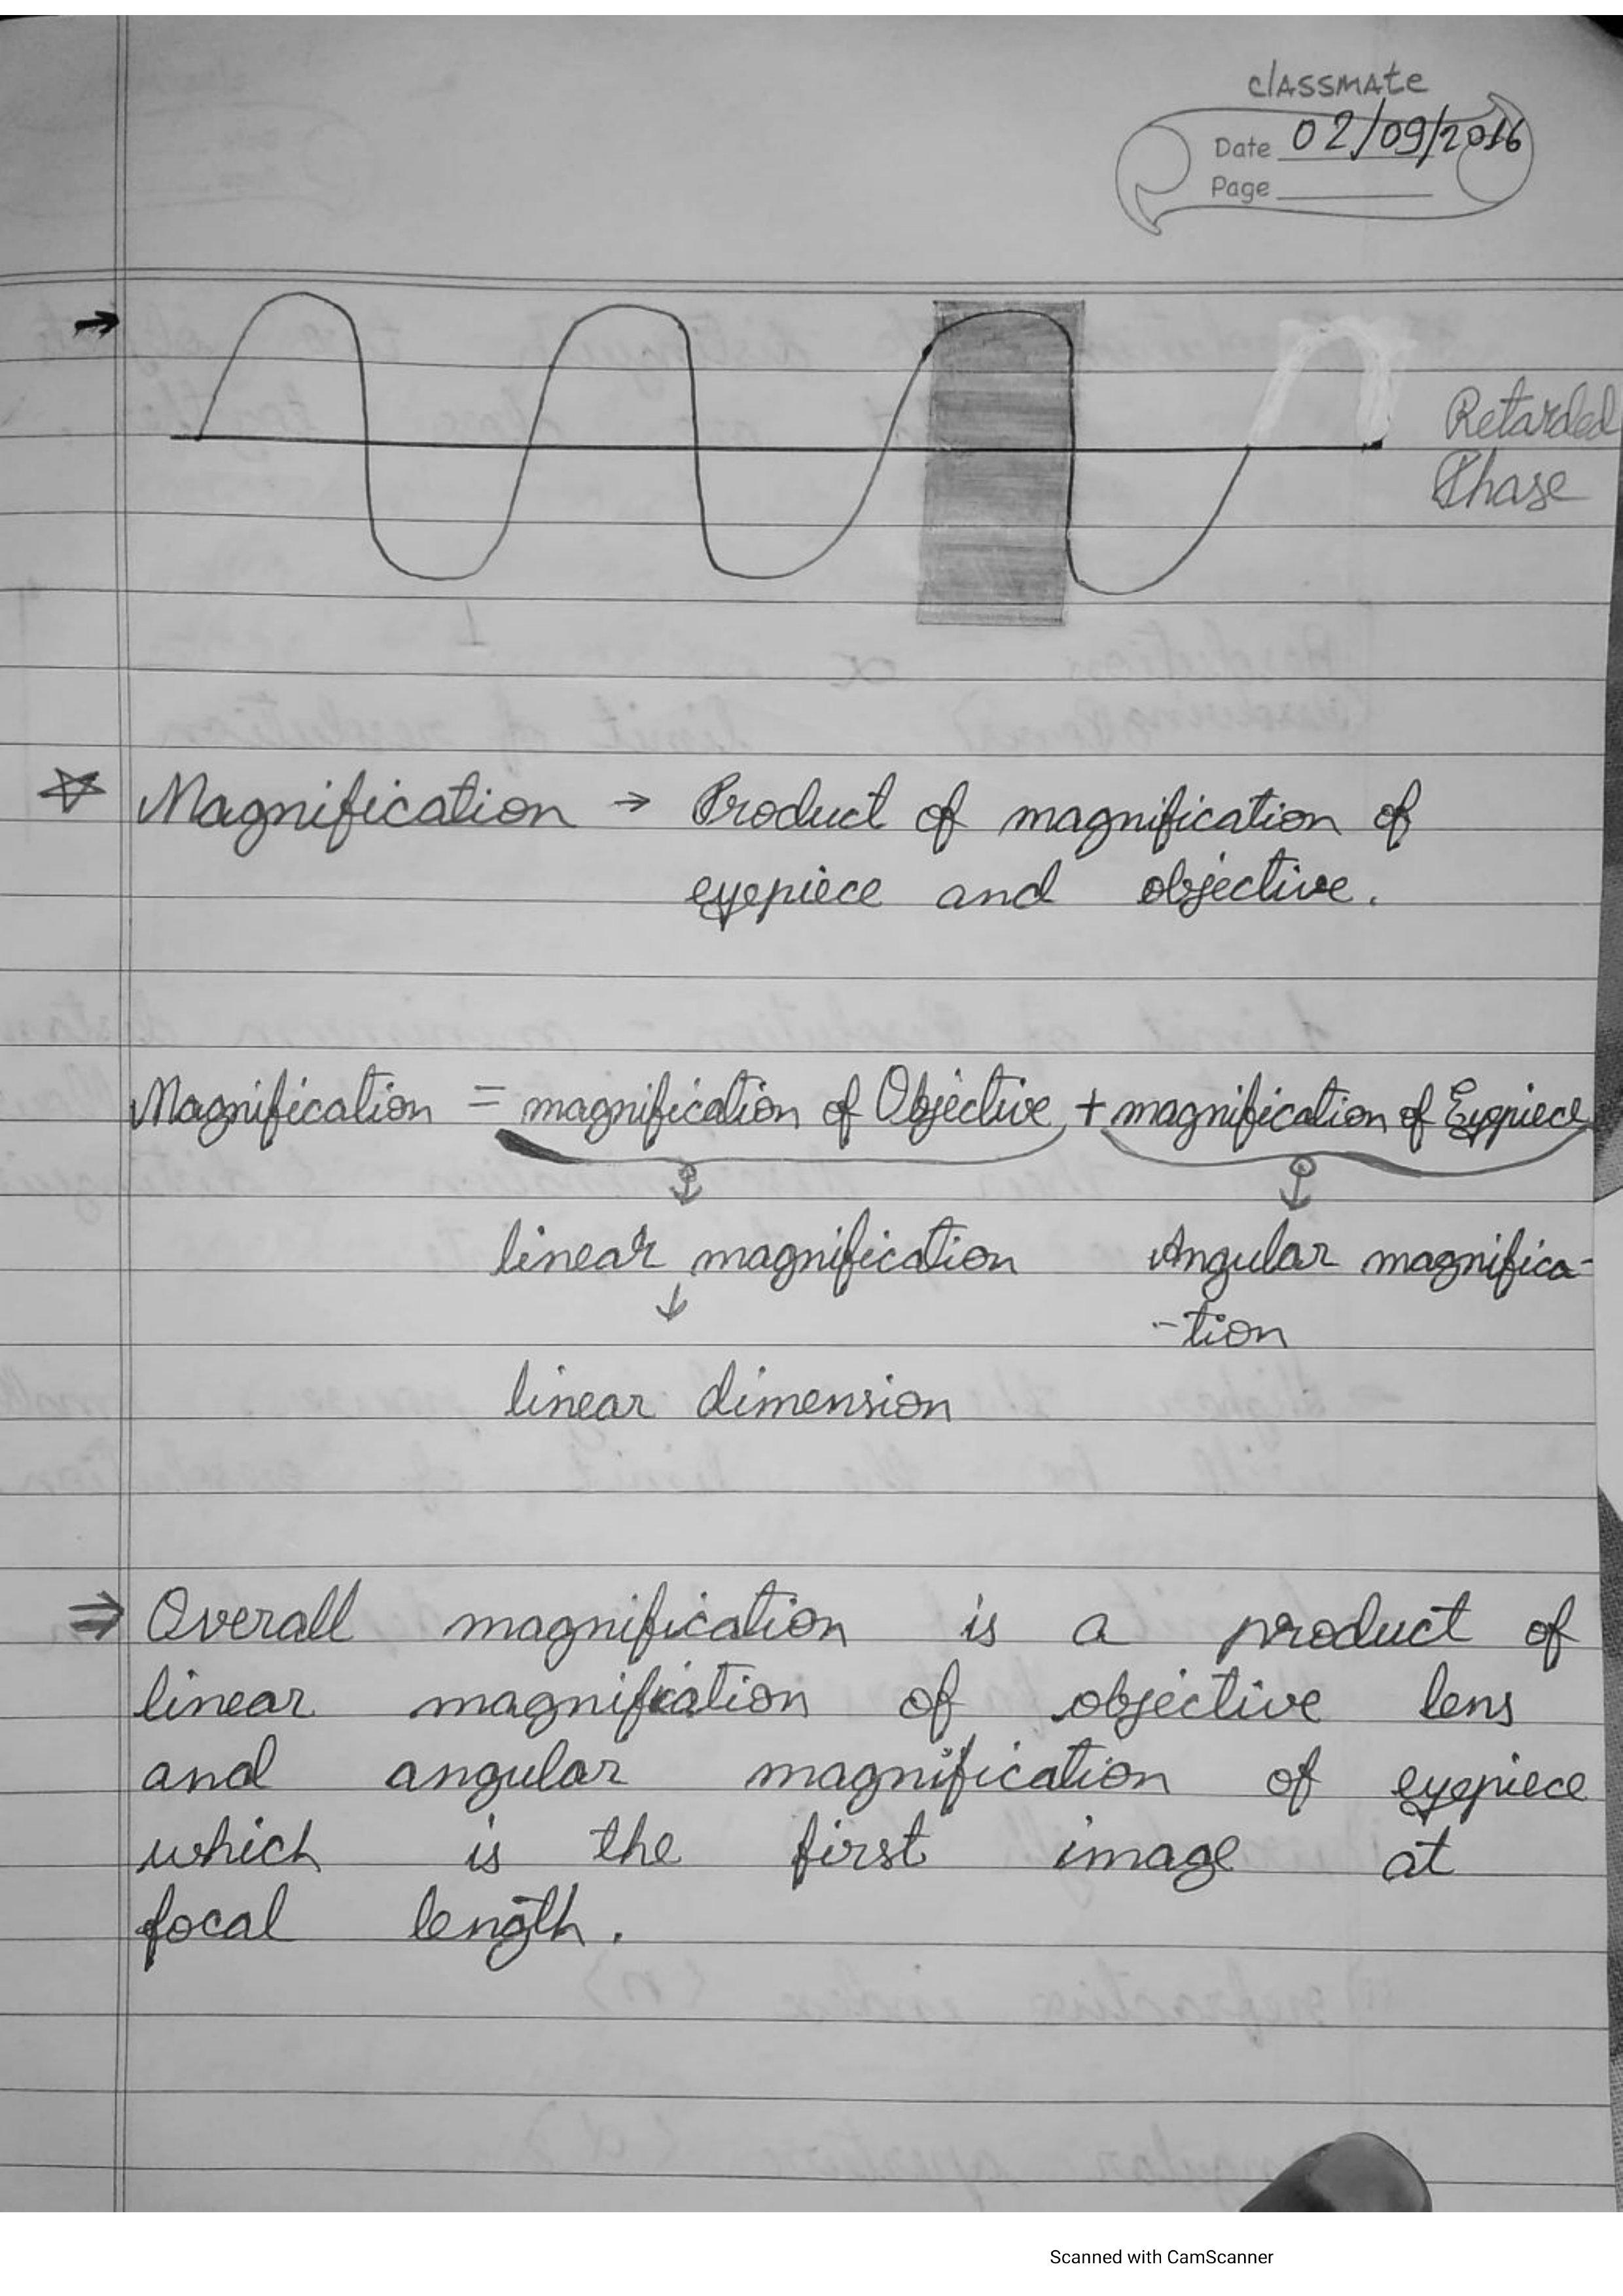 classmate
Date 02/09/2016
Page
→
Retarded
Phase
☆ Magnification → Product of magnification of
eyepiece and objective.
Magnification = magnification of Objective + magnification of Eyepiece
linear magnification Angular magnifica-
-tion
↓
linear dimension
⇒ Overall magnification is a product of
linear magnification of objective lens
and angular magnification of eyepiece
which is the first image at
focal length.
Scanned with CamScanner